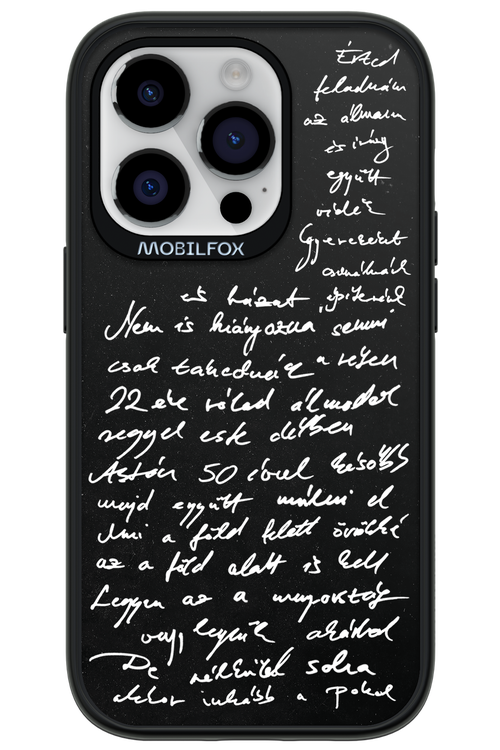 MOBILFOX
Érted
feladnám
az álmaim
és így
együtt
veled
Gyerekeket
csinálnék
és házat építenék
Nem is hiányozna semmi
csak takednék a
22 éve rólad álmodok
reggel este délben
Aztán 50 évvel később
majd együtt múlni el
Ami a föld felett örökké
az a föld alatt is kell
Legyen az a mennyország
vagy legyünk akárhol
De nélküled soha
akkor inkább a pokol